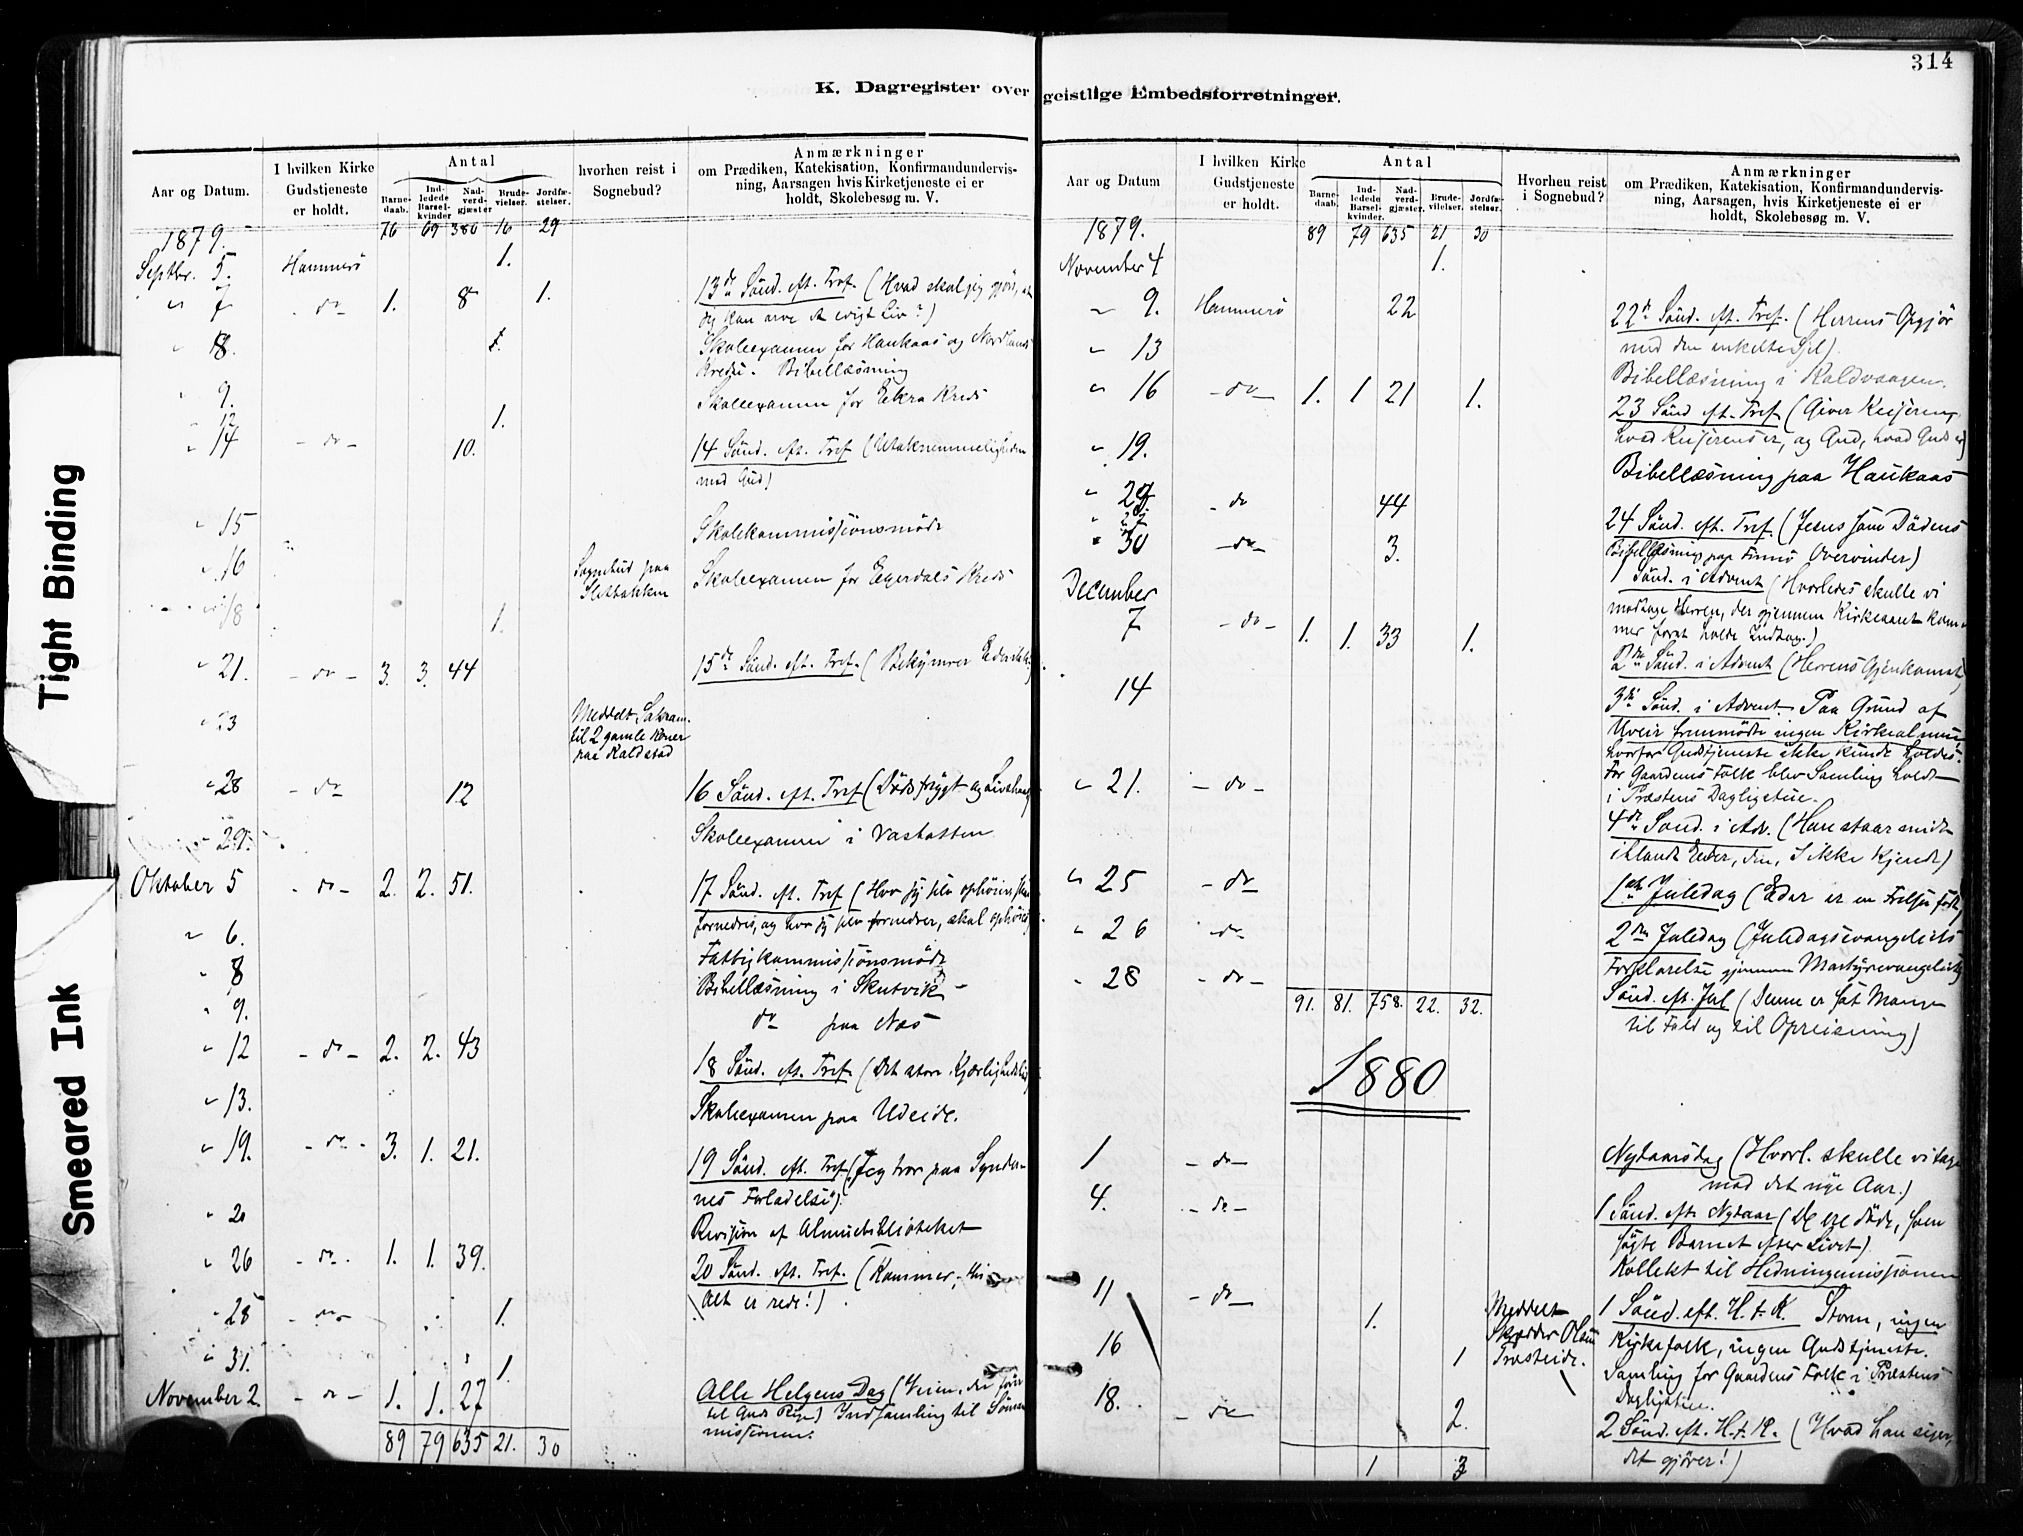 314
K. Dagregister over geistlige Embedsforretninger.
Tight Binding
Smeared Ink
Aar og Datum.
I hvilken Kirke
Gudstjeneste
er holdt.
Antal
Barne-
daab.
Ind-
ledede
Barsel-
kvinder
Nad-
verd-
gjæster
Brude-
vielser.
Jordfæ-
stelser.
hvorhen reist i
Sognebud?
Anmærkninger
om Prædiken, Katekisation, Konfirmandundervis-
ning, Aarsagen hvis Kirketjeneste ei er
holdt, Skolebesøg m. V.
1879. 76 69 380 16 29
Septbr. 5. Hammerö 1.
" 7 do 1. 8 1. 13de Sönd. eft. Tref. (Hvad skal jeg gjöre, at
jeg kan arve et evigt Liv?)
" 8. 1. Skoleexamen for Haukaas og Nordlands
Kredse. Bibellæsning
" 9. Skoleexamen for Ekra Kreds
" 12 1.
" 14 - do - 10. 14 Sönd. eft. Tref (Utaknemmeligheden
mod Gud)
" 15 Skolekommissionsmöde
" 16 Sognebud paa
Slettbakken Skoleexamen for Egerdals Kreds
" 18 1.
" 21. - do - 3. 3. 44 15de Sönd. eft. Tref. (Bekymrer Eder ikke)
" 23 Meddelt Sakram.
til 2 gamle Koner
paa Kaldstad
" 28 - do 12 16 Sönd. eft. Tref (Dödsfrygt og Livshaab
29. Skoleexamen i Vastatten
Oktober 5 - do - 2. 2. 51. 17 Sönd. eft. Tref (Hvo sig selv ophöier, skal
fornedres, og hvo sig selv fornedrer, skal ophöies)
" 6. Fattigkommissionsmöde
" 8 Bibellæsning i Skutvik -
" 9. do paa Næs
" 12 - do - 2. 2. 43 18 Sönd. eft. Tref. (Det store Kjærlighedsbud
" 13. Skoleexamen paa Udeide.
" 19. - do - 3. 1. 21. 19 Sönd. eft. Tref ("Jeg tror paa Synder-
nes Forladelse").
" 20 Revision af Almuebiblioteket
" 26 - do - 1. 1. 39. 20 Sönd. eft. Tref. (Kommer, thi
Alt er rede!)
" 28 - do - 1.
" 31. 1.
November 2. - do - 1. 1. 27 Alle Helgens Dag (Veien, der förer
til Guds Rige) Indsamling til Sömands-
missionen.
89 79 635 21. 30
Aar og Datum
I hvilken Kirke
Gudstjeneste
er holdt.
Antal
Barne-
daab.
Ind-
ledede
Barsel-
kvinder.
Nad-
verd-
gjæster.
Brude-
vielser.
Jordfæ-
stelser.
Hvorheu reist
i Sognebud?
Anmærkninger
om Prædiken, Katekisation, Konfirmandundervis-
ning, Aarsagen, hvis Kirketjeneste ei er
holdt, Skolebesøg m. V.
1879. 89 79 635 21 30
November 4 1.
" 9. Hammerö 22 22de Sönd. eft. Tref. (Herrens Opgjör
med den enkelte Sjel).
" 13 Bibellæsning i Kaldvaagen.
" 16 - do - 1. 1 21 1. 23 Sönd eft. Tref (Giver Keiseren,
hvad Keiserens er, og Gud, hvad Guds er)
" 19. Bibellæsning paa Haukaas
" 23 - do 44 24 Sönd. eft. Tref. (Jesus som Dödens
Overvinder)
" 27 Bibellæsning paa Finnö
" 30 - do - 3. 1 Sönd. i Advent (Hvorledes skulle vi
modtage Herren, der gjennem Kirkeaaret kom-
mer forat holde Indtog.)
December
7 - do - 1. 1. 33 1. 2den Sönd. i Advent (Herrens Gjenkomst)
14 3die Sönd. i Advent. Paa Grund af
Uveir fremmödte ingen Kirkealmue
hvorfor Gudstjeneste ikke kunde holdes.
For Gaardens Folk blev Samling holdt
i Præstens Dagligstue.
" 21. - do - 4de Sönd. i Adv. (Han staar midt
iblandt Eder, den, I ikke Kjende)
" 25 - do 1ste Juledag (Eder er en Frelser födt)
" 26 - do - 2den Juledag (Juledagsevangeliets
Forklarelse gjennem Martyrevangeliet)
" 28 - do - Sönd. eft. Jul (Denne er sat Mange
til Fald og til Opreisning)
91. 81. 758. 22. 32.
1880
1 - do - Nytaarsdag (Hvorl. skulle vi tage
mod det nye Aar.)
4. - do - 1 Sönd. eft. Nytaar (De ere döde, som
sögte Barnet efter Livet)
Kollekt til Hedningemissionen
11 - do - 1. Meddelt
Skrædder Olsen
1 Sönd. eft. H. t. K. Storm, ingen
Kirkefolk, ingen Gudstjeneste.
Samling for Gaardens Folk i Præstens
Dagligstue.
16 1
18. - do - 2. 2 Sönd. eft. H. t. K. (Hvad han siger,
det gjörer!)
1 3